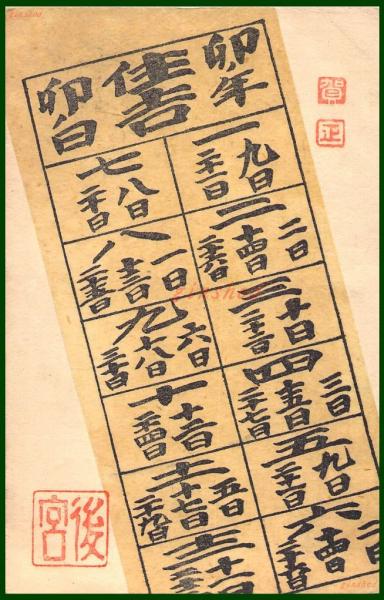 賀正
卯年
住吉
卯日
一
九日
二十一日
二
二日
十四日
二十六日
三
十日
二十二日
四
三日
十五日
二十七日
五
九日
二十一日
六
十四日
二十六日
七
八日
二十日
八
一日
十三日
二十五日
九
六日
十八日
三十日
十
十二日
二十四日
十一
五日
十七日
二十九日
十二
十一
後宮